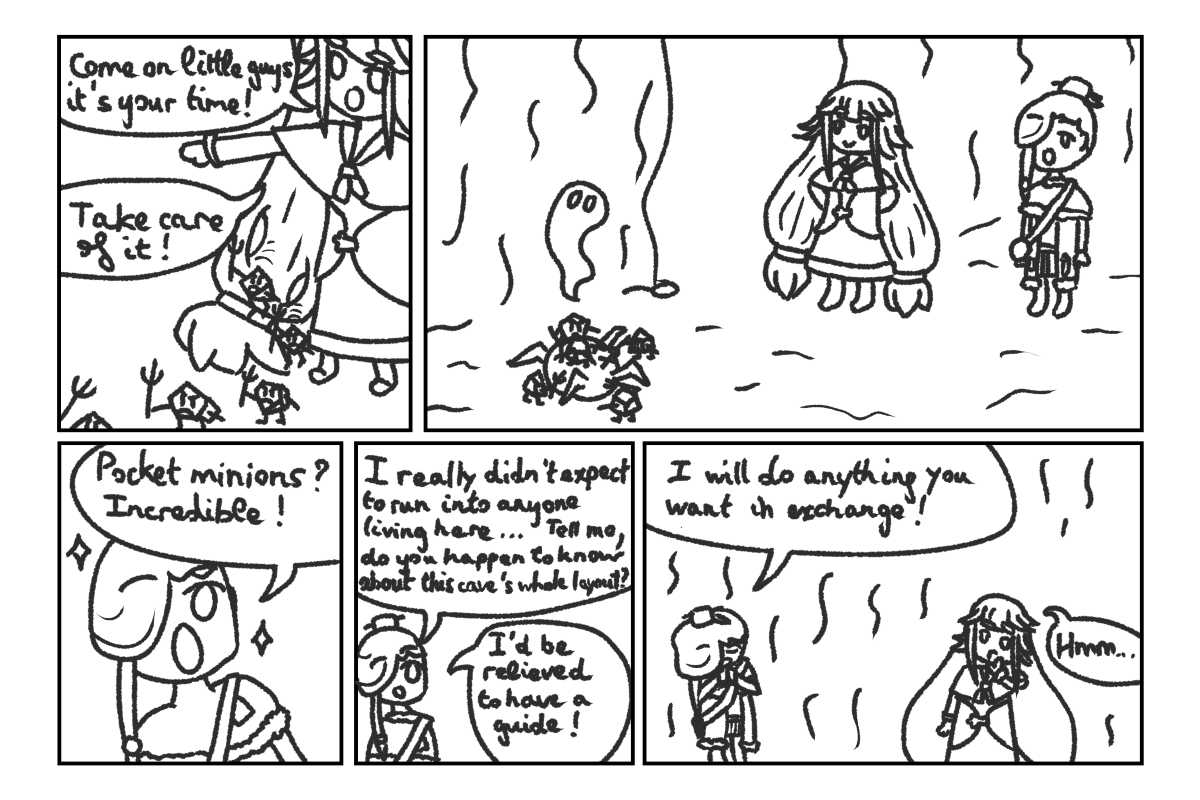 Come on little guys
it's your time!
Take care
of it!
Pocket minions?
Incredible!
I really didn't expect
to run into anyone
living here... Tell me,
do you happen to know
about this cave's whole layout?
I'd be
relieved
to have a
guide!
I will do anything you
want in exchange!
Hmm...